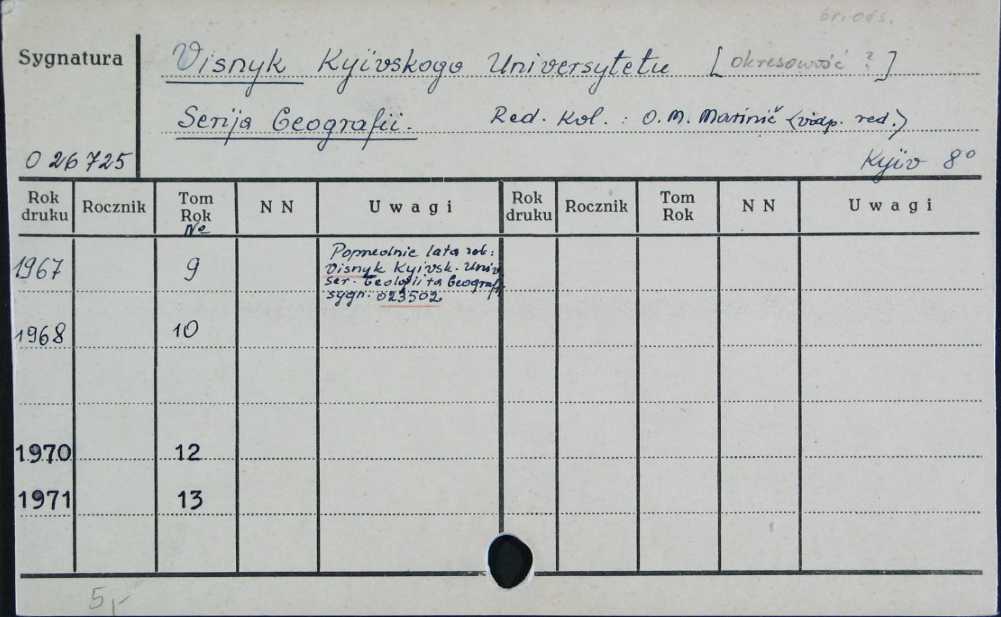 Sygnatura
Visnyk Kyïvskogo Universytetu [okresowość ?]
Serija Geografii. Red. Kol. : O. M. Marinič (vidp. red.)
O 26725
Kyïv 8°
Rok druku Rocznik Tom Rok № N N Uwagi Rok druku Rocznik Tom Rok N N Uwagi
1967 9 Poprzednie lata zob:
Visnyk Kyïvsk. Univ
ser. Geologii ta Geografii
sygn. 023502
1968 10
1970 12
1971 13
5,-